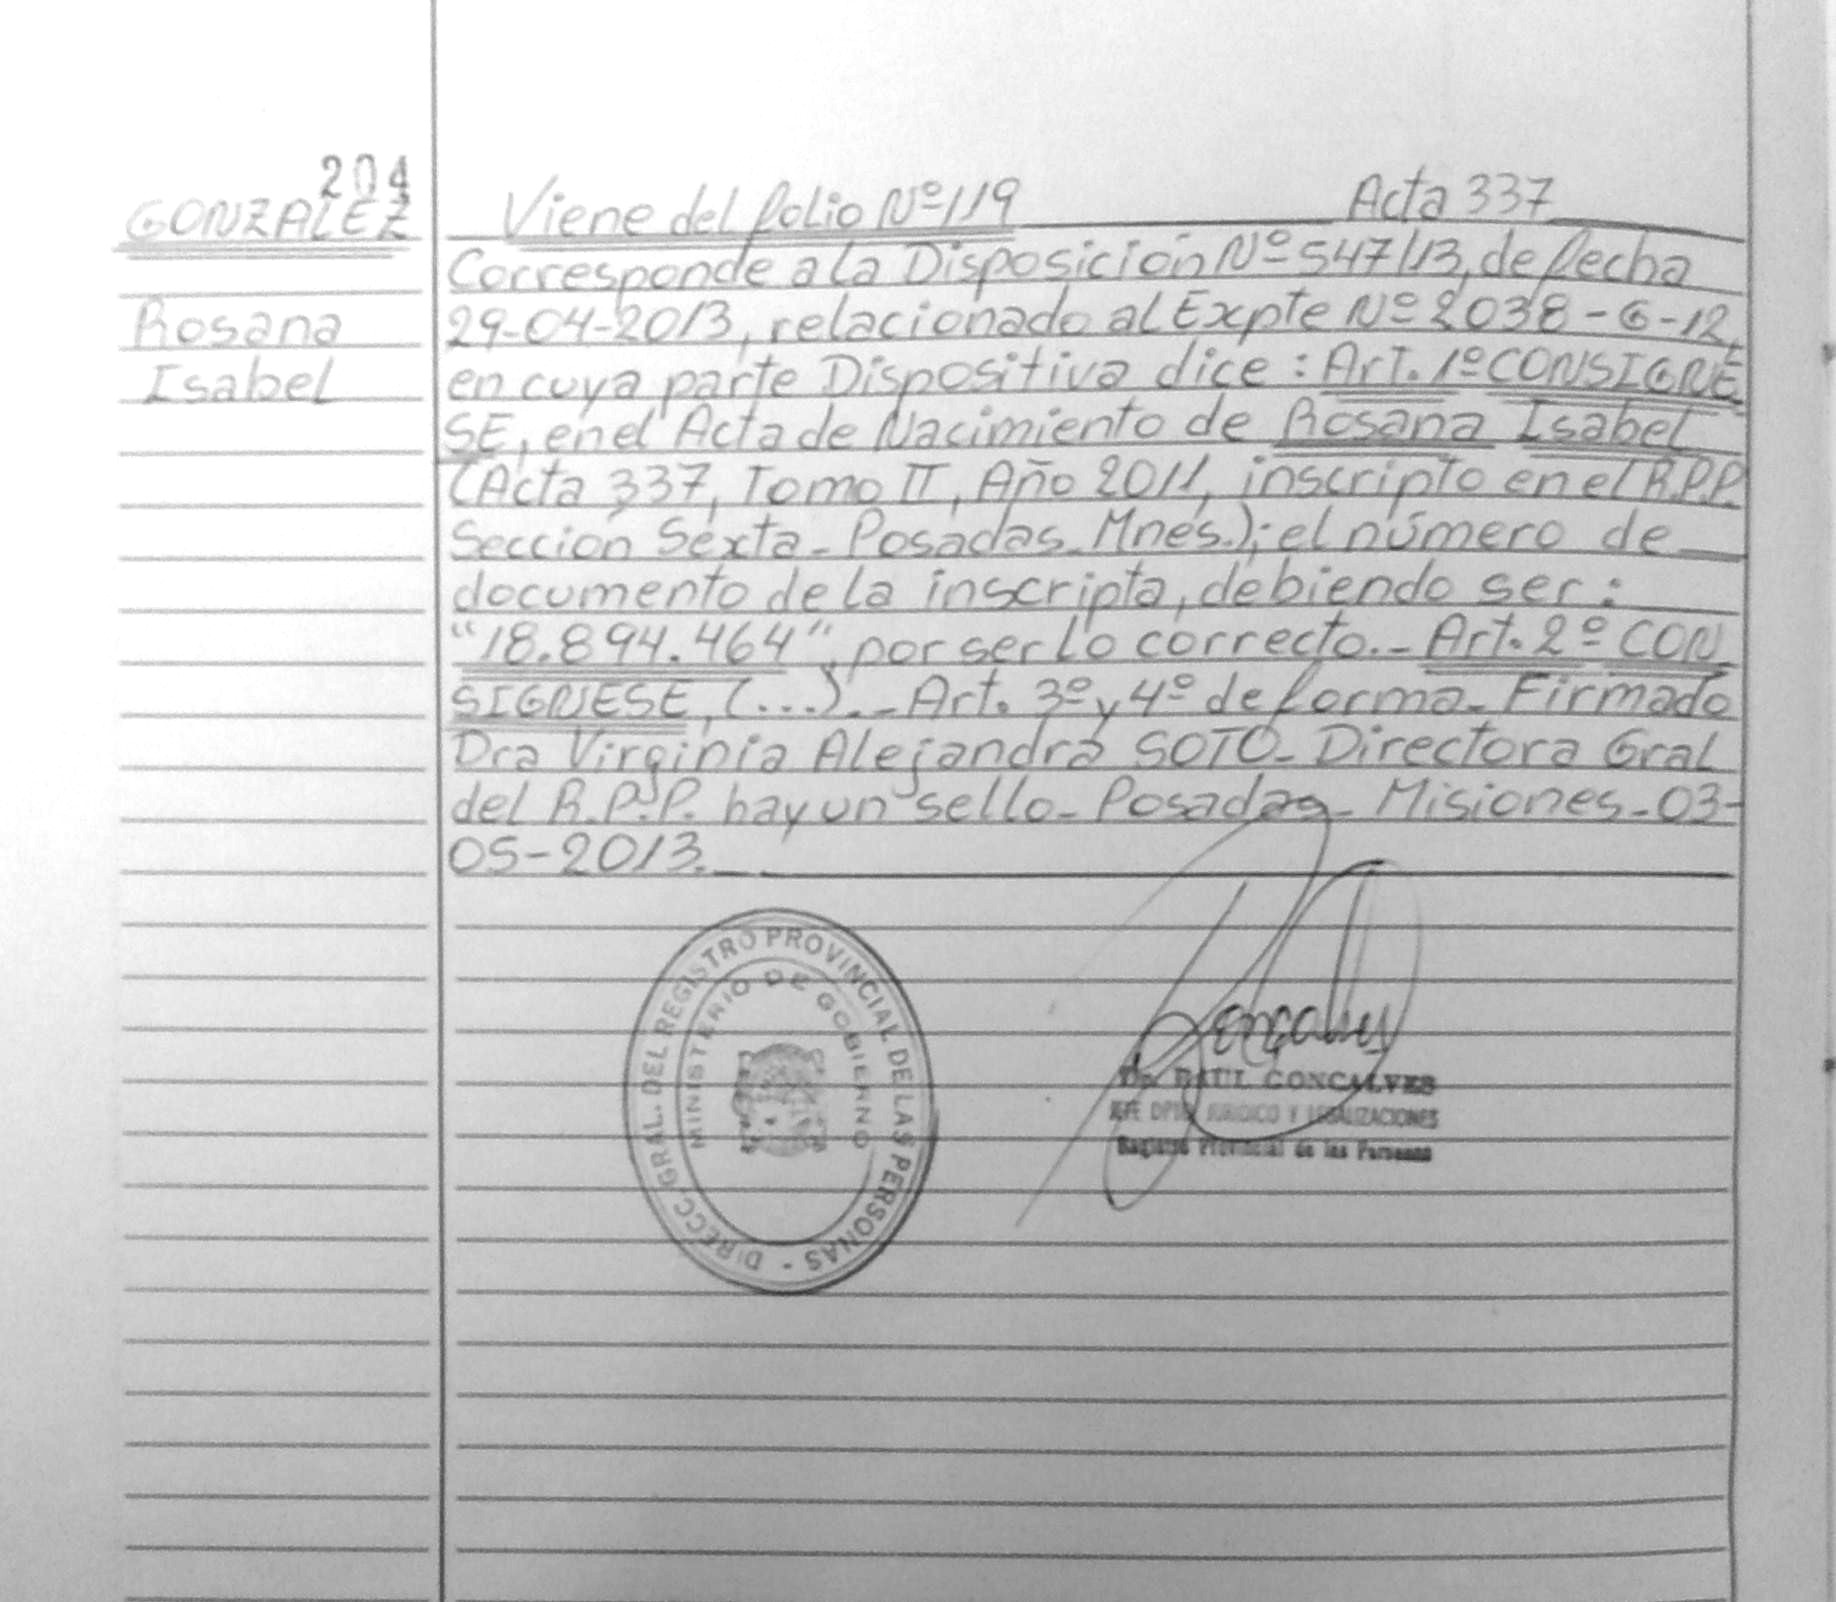 204
GONZALEZ
Rosana
Isabel
Viene del folio Nº 119 Acta 337
Corresponde a la Disposición Nº 547/13, de fecha
29-04-2013, relacionado al Expte Nº 2038-G-12,
en cuya parte Dispositiva dice: Art. 1º CONSIGNE
SE, en el Acta de Nacimiento de Rosana Isabel
(Acta 337, Tomo II, Año 2011, inscripto en el R.P.P.
Sección Sexta_ Posadas_ Mnes.); el número de
documento de la inscripta, debiendo ser:
"18.894.464", por ser lo correcto._ Art. 2º CON
SIGNESE, (...)._ Art. 3º y 4º de forma_ Firmado
Dra Virginia Alejandra SOTO_ Directora Gral
del R.P.P. hay un sello_ Posadas_ Misiones_03-
05-2013.
DIRECC. GRAL. DEL REGISTRO PROVINCIAL DE LAS PERSONAS -
MINISTERIO DE GOBIERNO
Gonçalves
Dr. RAUL GONCALVES
JEFE DPTO. JURIDICO Y LEGALIZACIONES
Registro Provincial de las Personas